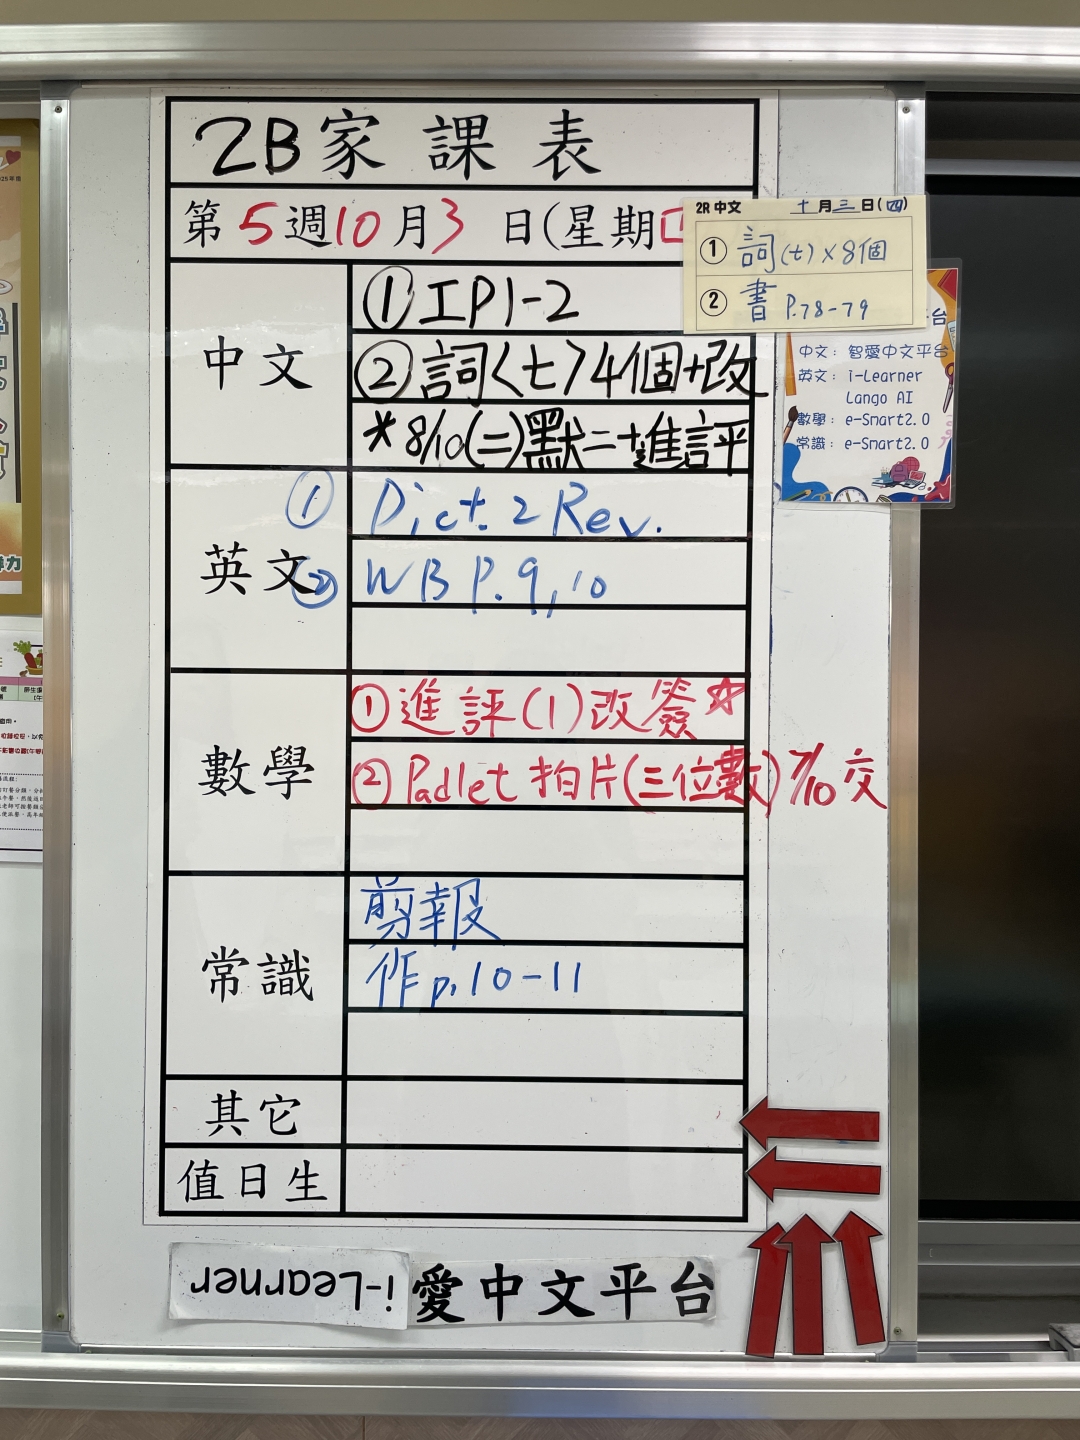 2B家課表
第5週10月3日(星期
2R 中文 十月三日(四)
① 詞(七)×8個
② 書 P.78-79
中文
① 工P1-2
② 詞〈七〉4個+改
*8/10(二)默二+進評
台
中文：智愛中文平台
英文：i-Learner
Lango AI
數學：e-Smart2.0
常識：e-Smart2.0
英文
① Dict. 2 Rev.
② WB P.9,10
數學
① 進評(1)改簽☆
② Padlet 拍片(三位數) 7/10 交
常識
剪報
作p.10-11
其它
值日生
i-Learner
愛中文平台